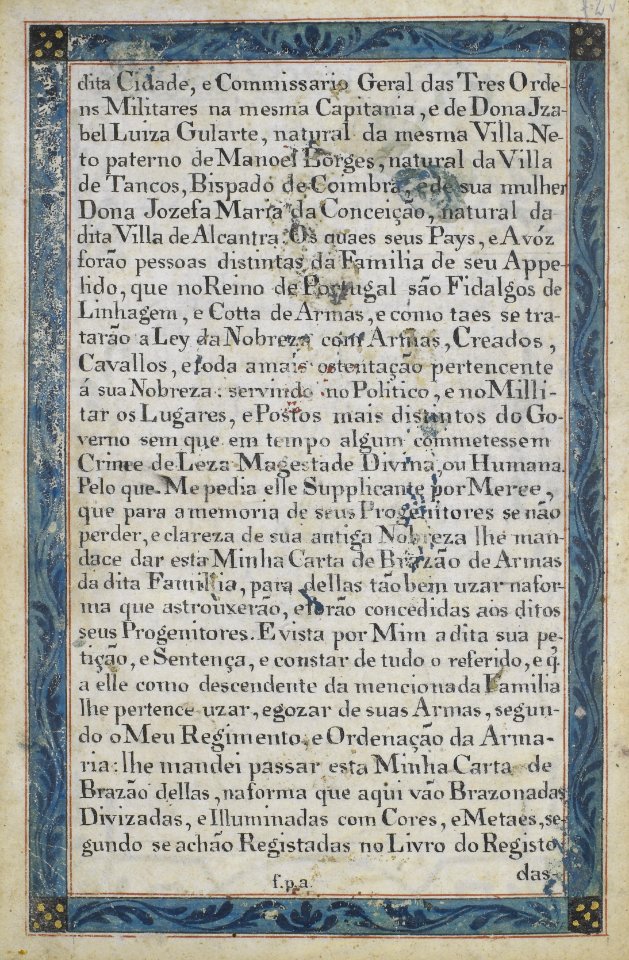 dita Cidade, e Commissario Geral das Tres Orde-
ns Militares na mesma Capitania, e de Dona Jza-
bel Luiza Gularte, natural da mesma Villa. Ne-
to paterno de Manoel Borges, natural da Villa
de Tancos, Bispado de Coimbra, e de sua mulher
Dona Jozefa Maria da Conceição, natural da
dita Villa de Alcantra. Os quaes seus Pays, e Avóz
forão pessoas distintas da Familia de seu Appe-
lido, que no Reino de Portugal são Fidalgos de
Linhagem, e Cotta de Armas, e como taes se tra-
tarão a Ley da Nobreza com Armas, Creados,
Cavallos, e toda a mais ostentação pertencente
á sua Nobreza: servindo no Politico, e no Milli-
tar os Lugares, e Postos mais distintos do Go-
verno sem que em tempo algum commetessem
Crime de Leza Magestade Divina, ou Humana.
Pelo que Me pedia elle Supplicante por Merce,
que para a memoria de seus Progenitores se não
perder, e clareza de sua antiga Nobreza lhe man-
dace dar esta Minha Carta de Brazão de Armas
da dita Familia, para dellas tão bem uzar na for-
ma que as trouxerão, e forão concedidas aos ditos
seus Progenitores. E vista por Mim a dita sua pe-
tição, e Sentença, e constar de tudo o referido, e q.
a elle como descendente da mencionada Familia
lhe pertence uzar, e gozar de suas Armas, segun-
do o Meu Regimento, e Ordenação da Arma-
ria: lhe mandei passar esta Minha Carta de
Brazão dellas, na forma que aqui vão Brazonadas
Divizadas, e Illuminadas com Cores, e Metaes, se-
gundo se achão Registadas no Livro do Registo
das-
f.p.a.